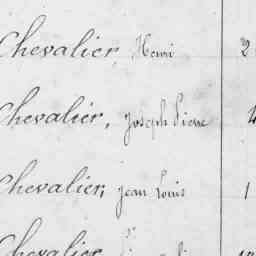 Chevalier, Henri 2
Chevalier, Joseph Pierre 4
Chevalier, Jean Louis 1
Chevalier